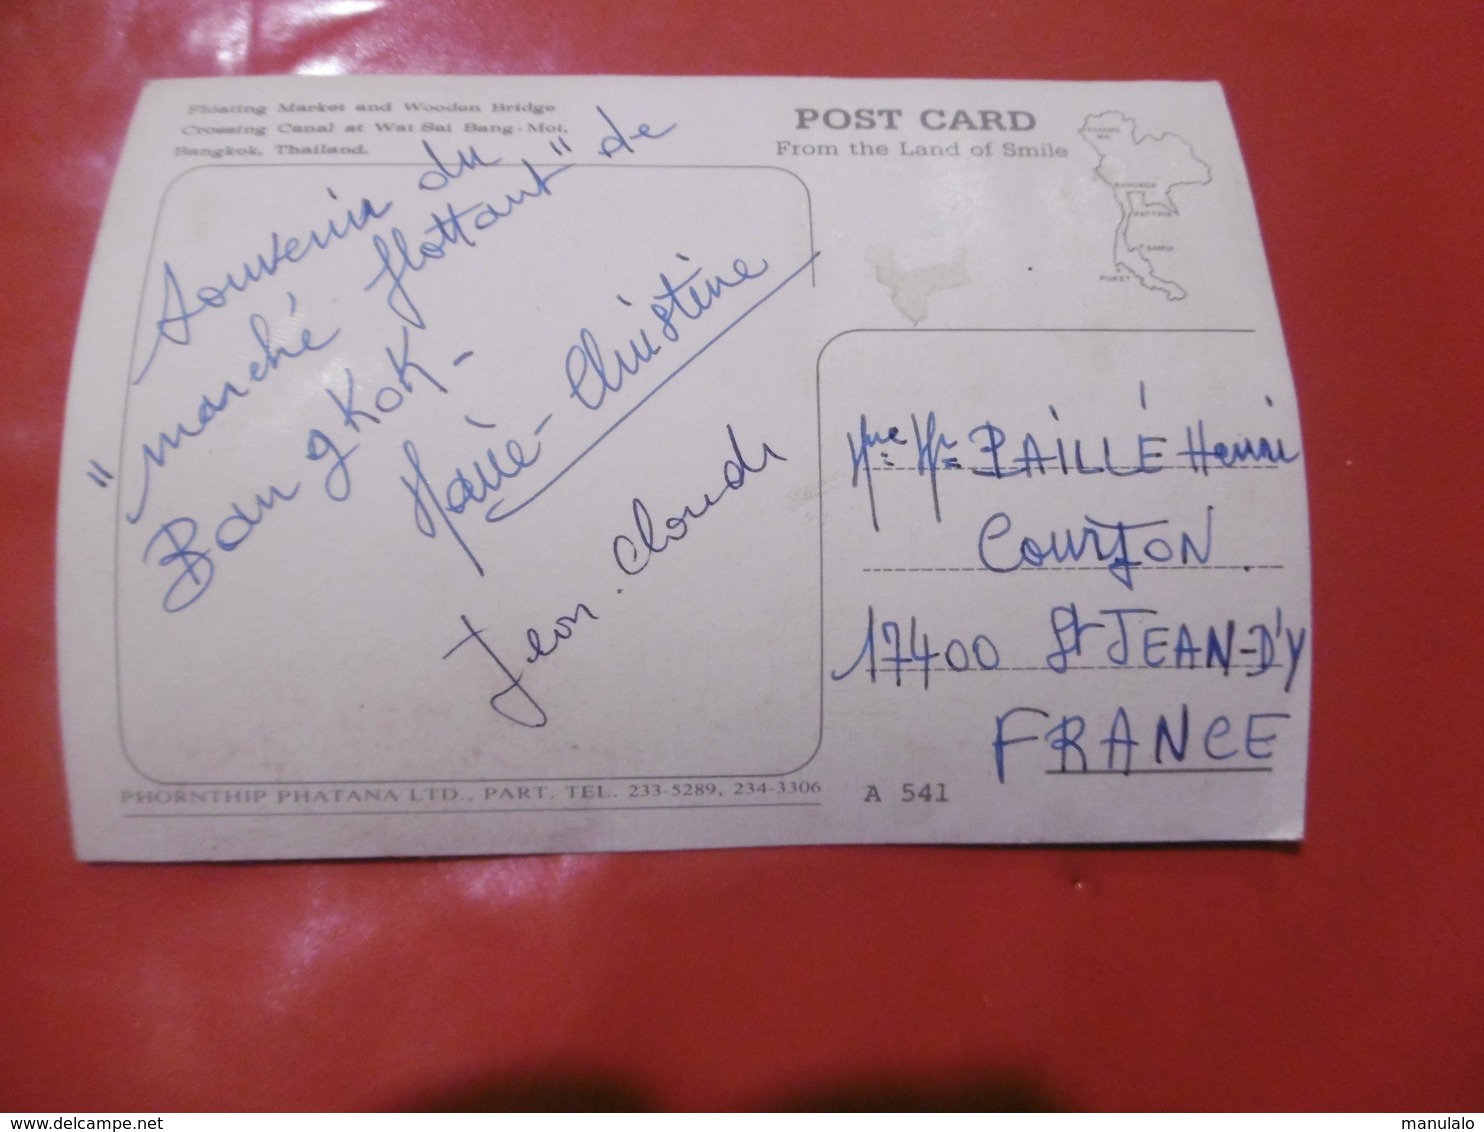 Floating Market and Wooden Bridge
Crossing Canal at Wat Sai Bang-Mot,
Bangkok, Thailand.
POST CARD
From the Land of Smile
CHIANG
MAI
BANGKOK
PATTAYA
SAMUI
PUKET
Souvenir du
"marché flottant" de
Bangkok-
Marie-Christine
Jean. Claude
Mme: Mr= PAILLÉ Henri
COURJON.
17400 St JEAN-D'Y
FRANCE
PHORNTHIP PHATANA LTD., PART. TEL. 233-5289, 234-3306
A 541
www.delcampe.net
manulalo